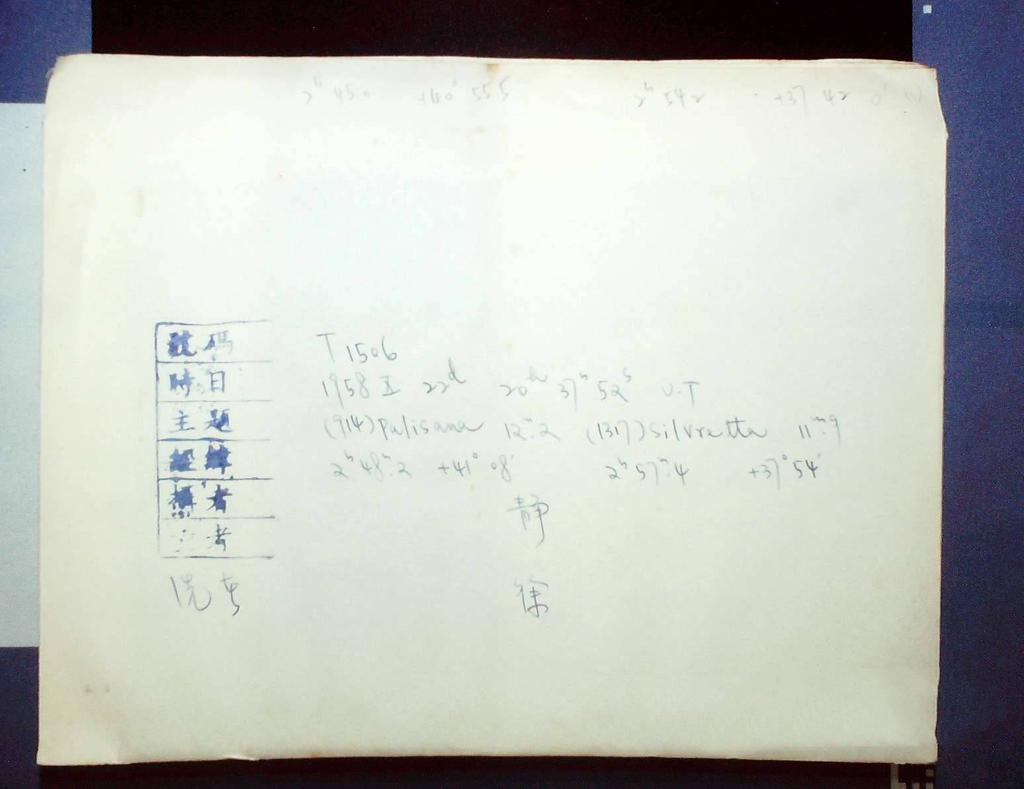 2ʰ 45.0 +40° 55.5 2ʰ 54.2 +37 42
號碼 T 1506
時日 1958 X 22ᵈ 20ʰ 37ᵐ 52ˢ U.T
主題 (914) palisana 12ᵐ.2 (1317) silvretta 11ᵐ.9
經緯 2ʰ 48ᵐ.2 +41° 08' 2ʰ 57ᵐ.4 +37° 54'
攝者 靜
考
洗者 徐